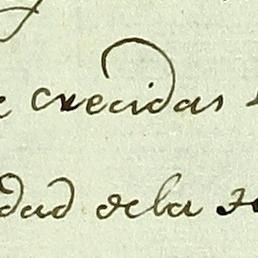 crecidas
dad dela